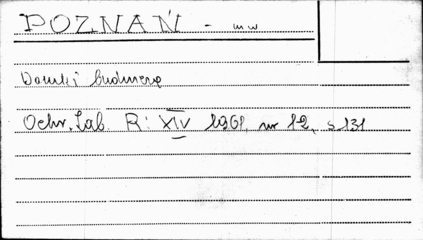 POZNAŃ - mw
Domki budnicze
Ochr. Zab. R: XIV 1961, nr 1-2, s. 131